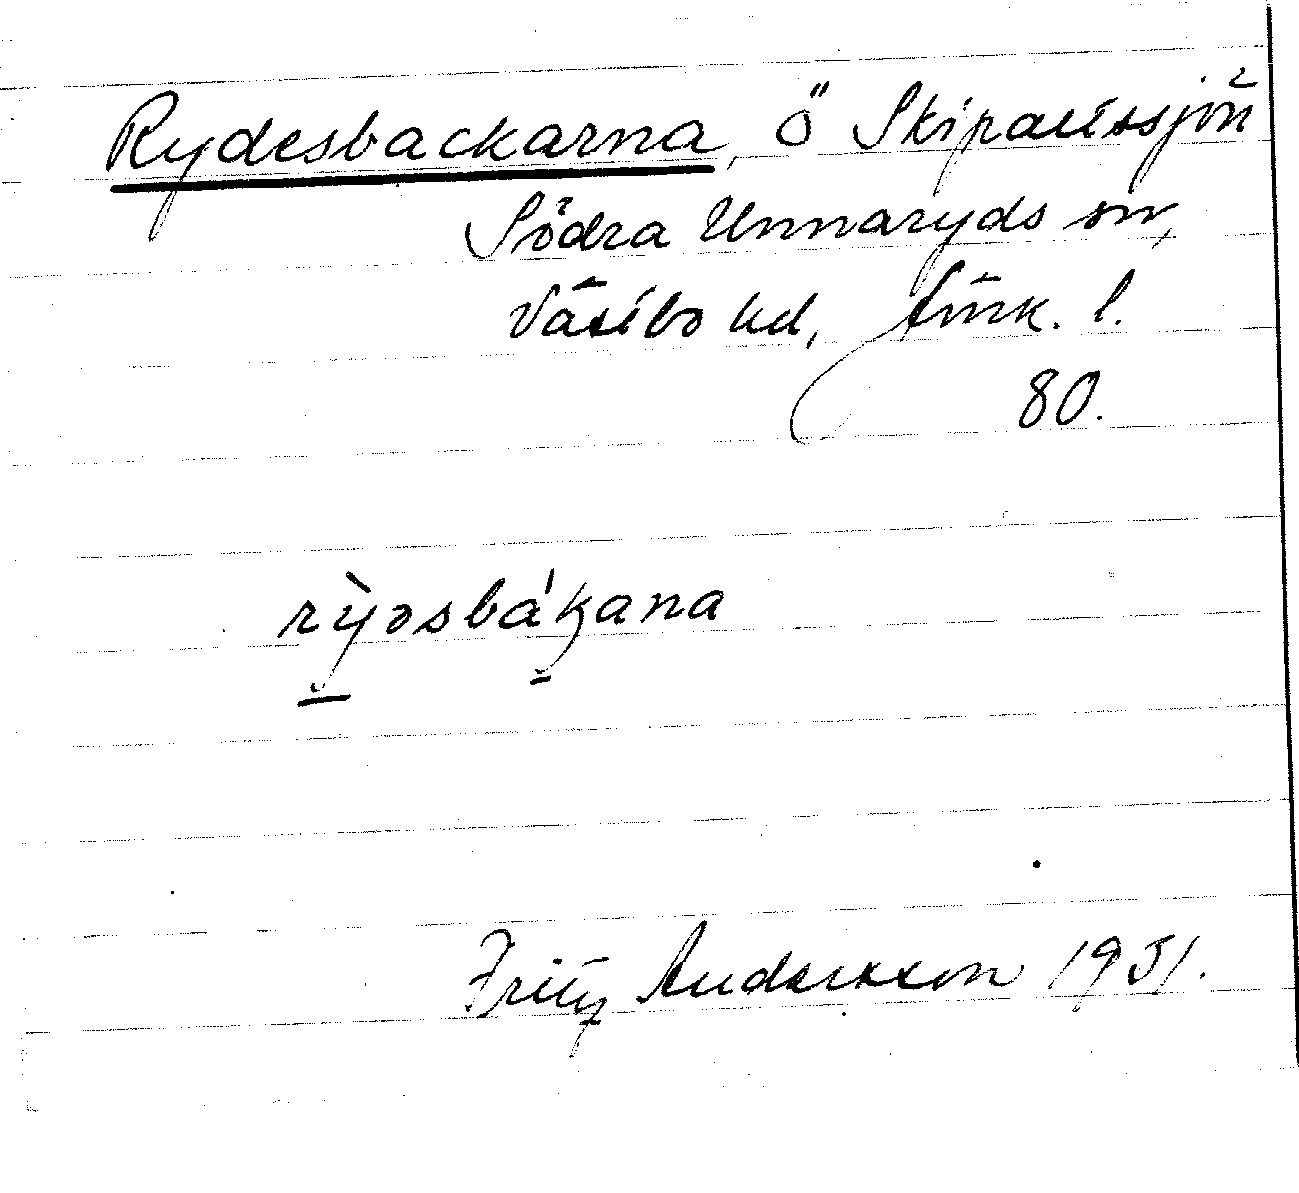 Rydesbackarna, Ö Skiparissjön
Södra Unnaryds sn,
Västbo hd, Jönk. l.
80.
rỳəsbákana
Fritz Andersson 1931.